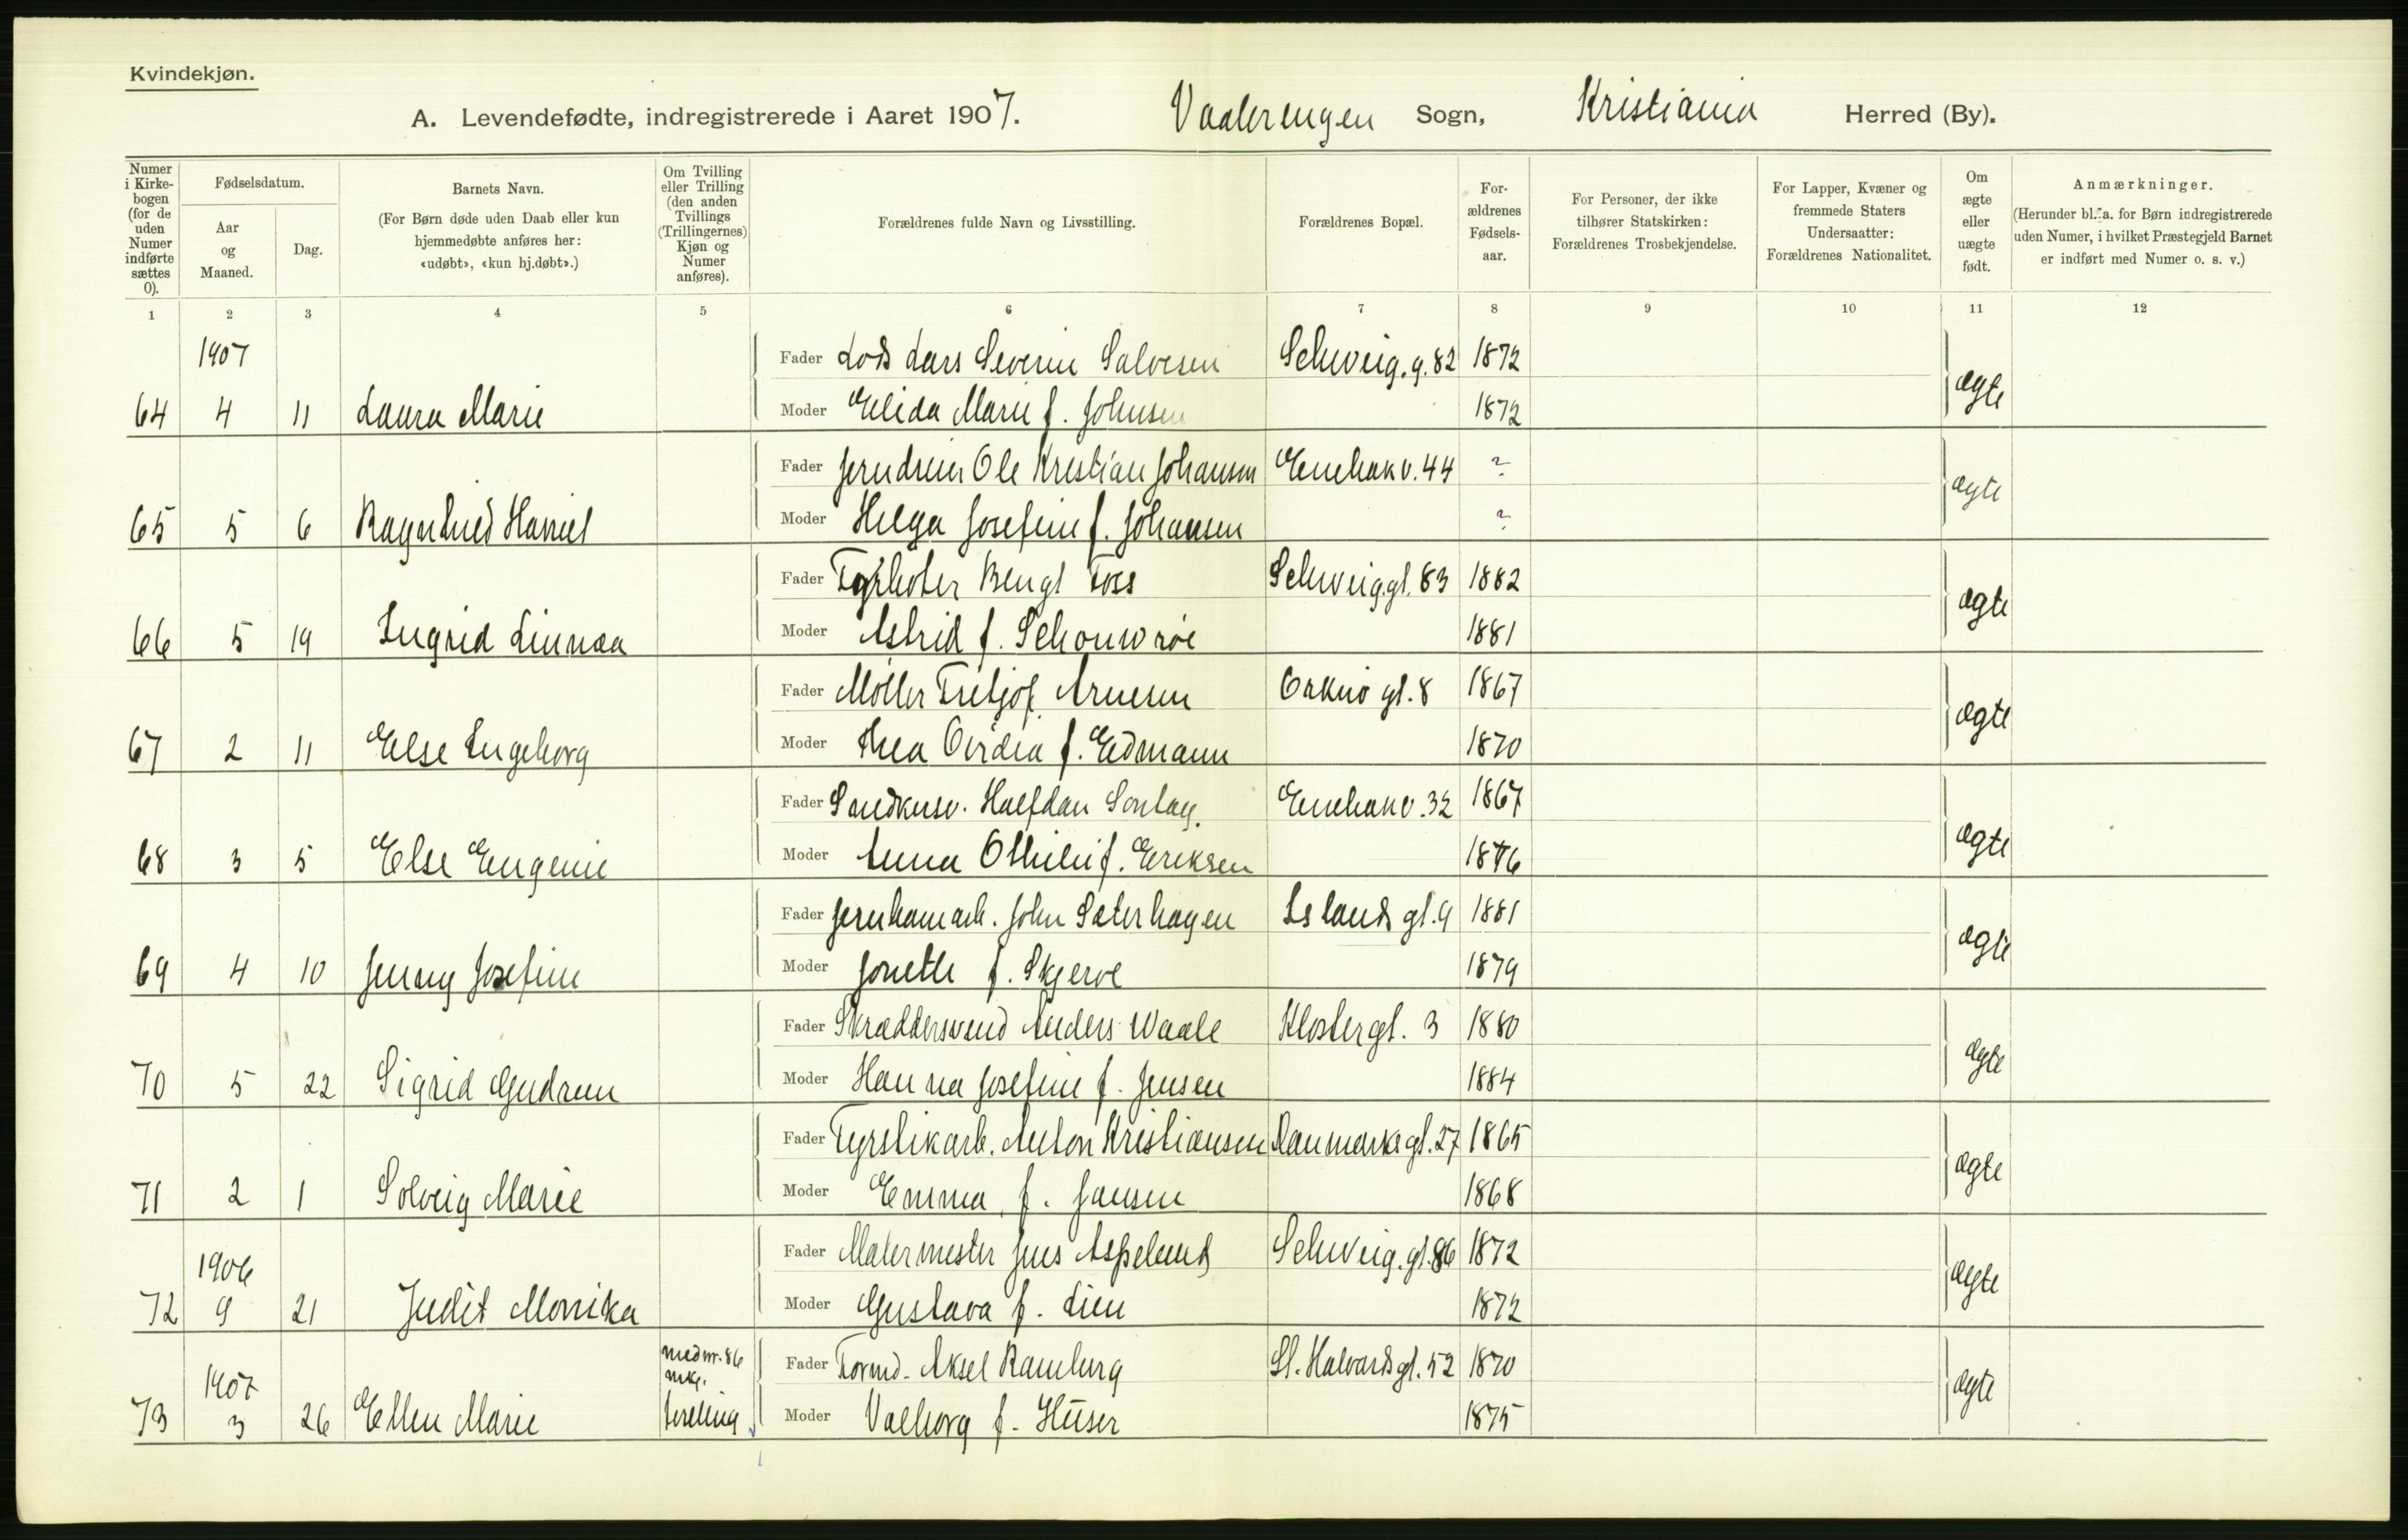 Kvindekjøn.
A. Levendefødte, indregistrerede i Aaret 1907. Vaalerengen Sogn, Kristiania Herred (By).
Numer i Kirkebogen (for de uden Numer indførte sættes 0).
Fødselsdatum.
Aar og Maaned.
Dag.
Barnets Navn.
(For Børn døde uden Daab eller kun hjemmedøbte anføres her: «udøbt», «kun hj.døbt».)
Om Tvilling eller Trilling (den anden Tvillings (Trillingernes) Kjøn og Numer anføres).
Forældrenes fulde Navn og Livsstilling.
Forældrenes Bopæl.
Forældrenes Fødselsaar.
For Personer, der ikke tilhører Statskirken: Forældrenes Trosbekjendelse.
For Lapper, Kvæner og fremmede Staters Undersaatter: Forældrenes Nationalitet.
Om ægte eller uægte født.
Anmærkninger.
(Herunder bl. a. for Børn indregistrerede uden Numer, i hvilket Præstegjeld Barnet er indført med Numer o. s. v.)
1 2 3 4 5 6 7 8 9 10 11 12
1907 Fader Lods Lars Severin Salvesen Schweig. g. 82 1872
64 4 11 Laura Marie Moder Elida Marie f. Johnsen 1872 ægte
Fader Jerndreier Ole Kristian Johansen Enebak v. 44 ?
65 5 6 Ragnhild Moder Helga Josefine f. Johansen ? ægte
Fader Bengt Foss Schweig.gt. 83 1882
66 5 19 Ingrid Linnea Moder Astrid f. 1881 ægte
Fader Møller Fritjof Arnesen Orknø gt. 8 1867
67 2 11 Else Ingeborg Moder Thea Ovidia f. Edmann 1870 ægte
Fader Halfdan Sontag. Enebak v. 32 1867
68 3 5 Else Eugenie Moder Anna Othilie f. Eriksen 1876 ægte
Fader John Sæterhagen Islands gt. 9 1881
69 4 10 Jenny Josefine Moder Jonette f. Skjerve 1879 ægte
Fader Skræddersvend Anders Waale Kloster gt. 3 1880
70 5 22 Sigrid Gudrun Moder Hanna Josefine f. Jensen 1884 ægte
Fader Fyrstikarb. Anton Kristiansen Danmarks gt. 27 1865
71 2 1 Solveig Marie Moder Emma f. Jansen 1868 ægte
1906 Fader Malermester Jens Aspelund Schweig. gt. 86 1872
72 9 21 Judit Monika Moder Gustava f. Lien 1872 ægte
1907 med nr. 86 mkj. Fader Formd. Aksel Ramberg St. Halvards gt. 52 1870
73 3 26 Ellen Marie tvilling Moder Valborg f. Huser 1875 ægte